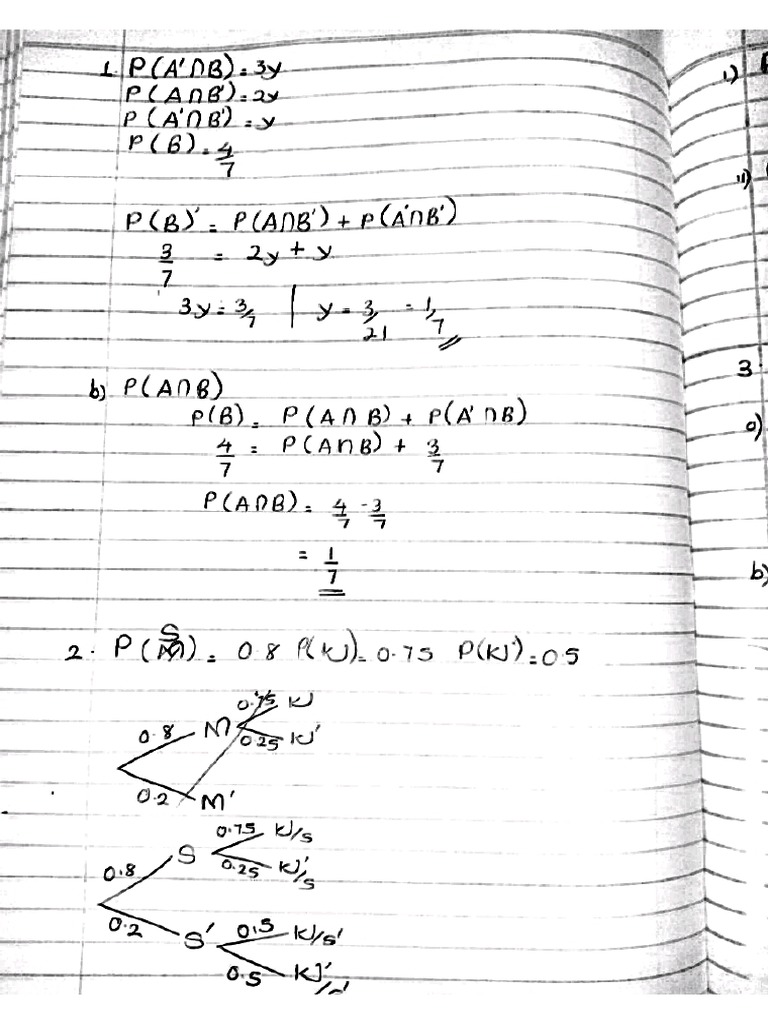 1. P(A'∩B) = 3y
P(A∩B') = 2y
P(A'∩B') = y
P(B) = 4/7
P(B)' = P(A∩B') + P(A'∩B')
3/7 = 2y + y
3y = 3/7 | y = 3/21 = 1/7
b) P(A∩B)
P(B) = P(A∩B) + P(A'∩B)
4/7 = P(A∩B) + 3/7
P(A∩B) = 4/7 - 3/7
= 1/7
2. P(S) = 0.8 P(KJ) = 0.75 P(KJ') = 0.5
0.75 KJ
0.8 M
0.25 KJ'
0.2 M'
0.75 KJ/S
S
0.25 KJ'/S
0.8
0.2 S'
0.5 KJ/S'
0.5 KJ'
i)
ii)
3.
a)
b)